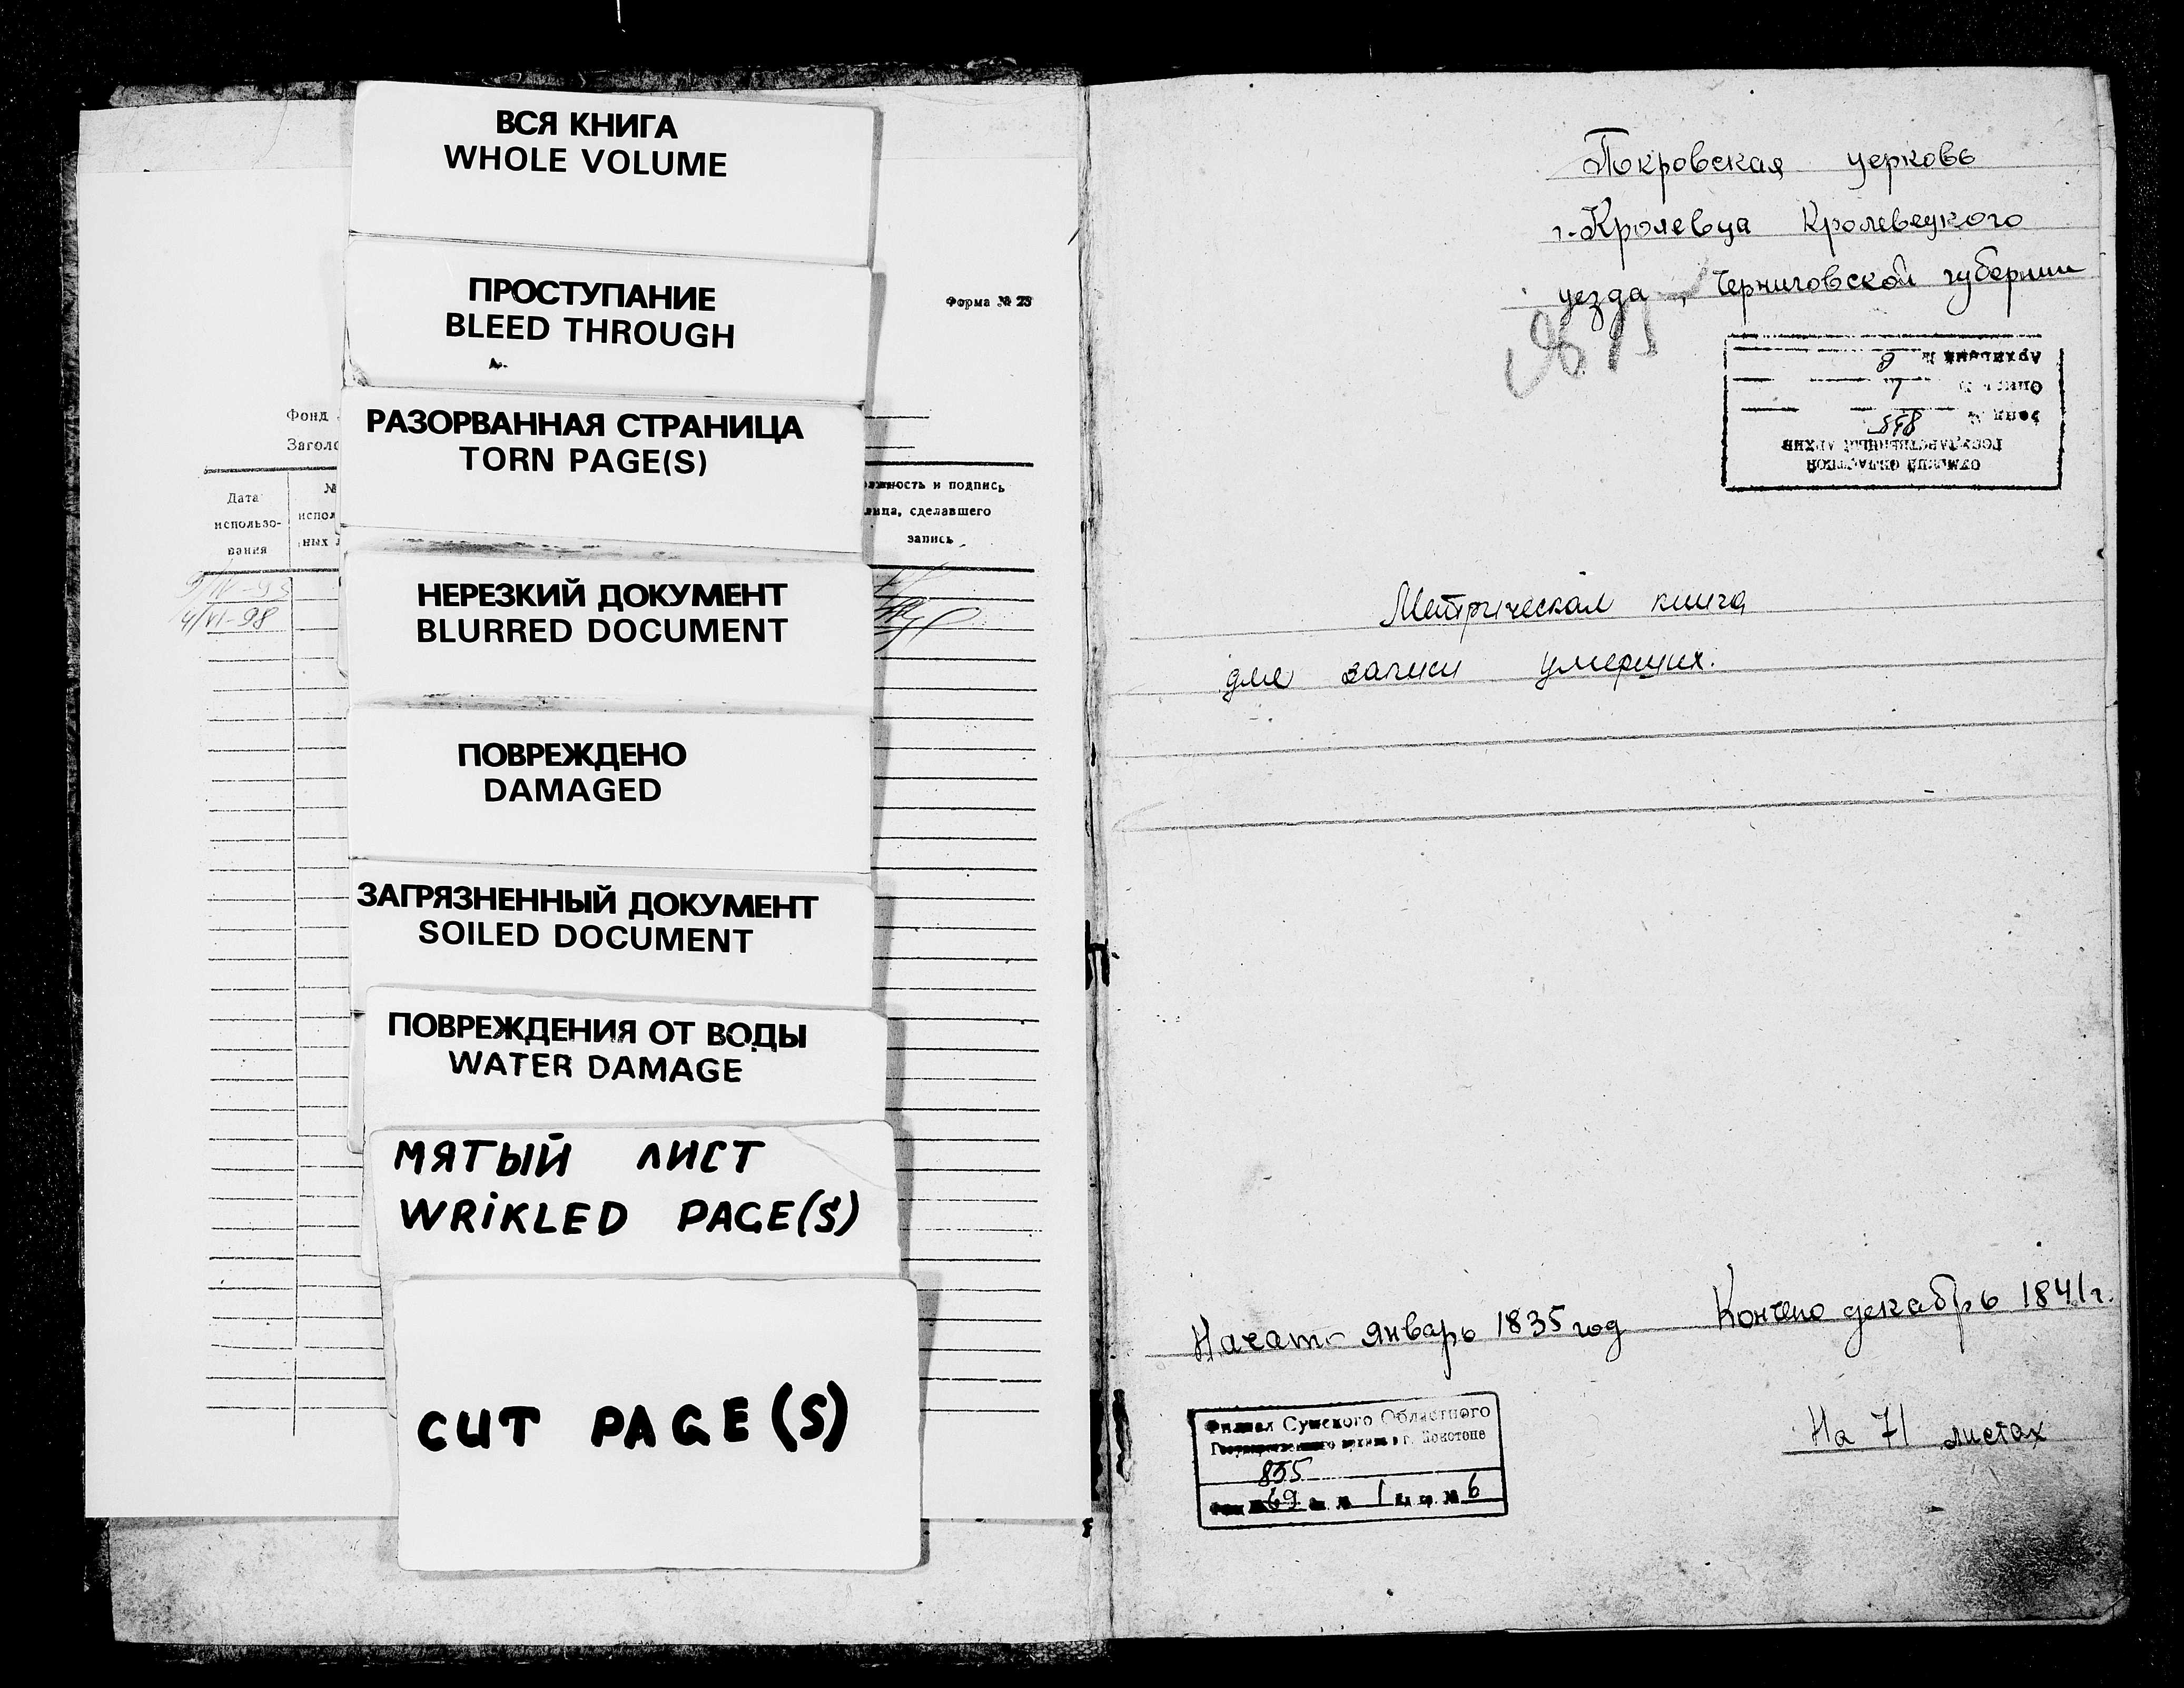 ВСЯ КНИГА
WHOLE VOLUME
ПРОСТУПАНИЕ
BLEED THROUGH
РАЗОРВАННАЯ СТРАНИЦА
TORN PAGE(S)
НЕРЕЗКИЙ ДОКУМЕНТ
BLURRED DOCUMENT
ПОВРЕЖДЕНО
DAMAGED
ЗАГРЯЗНЕННЫЙ ДОКУМЕНТ
SOILED DOCUMENT
ПОВРЕЖДЕНИЯ ОТ ВОДЫ
WATER DAMAGE
МЯТЫЙ ЛИСТ
WRIKLED PAGE(S)
CUT PAGE(S)
Форма № 23
Фонд
Заголо
Дата
использо-
вания
№
испол
ных л
лжность и подпись
лица, сделавшего
запись
4/VI-98
Покровская церковь
г. Кролевца Кролевецкого
уезда, Черниговской губернии
СУМСКИЙ ОБЛАСТНОЙ
ГОСУДАРСТВЕННЫЙ АРХИВ
Фонд №
Опись № 1
Архивный №
Метрическая книга
для записи умерших.
Начато январь 1835 год Кончено декабрь 1841 г.
На 71 листах
Филиал Сумского Областного
Государственного архива в г. Конотопе
855
Фонд № 69 оп. № 1 Ед. хр. № 6